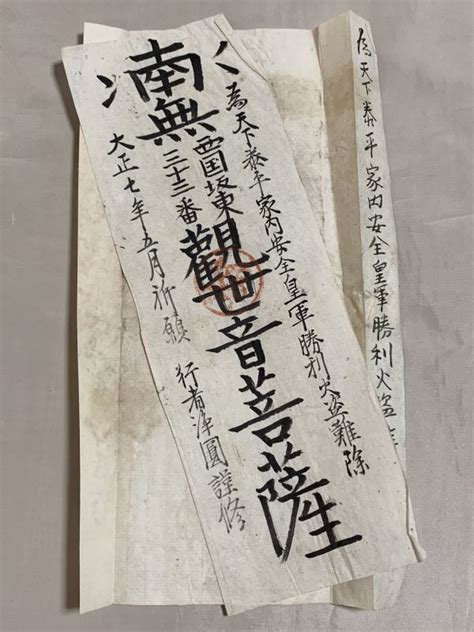 為天下泰平家内安全皇軍勝利火盗
為天下泰平家内安全皇軍勝利火盗難除
南無
西国坂東
三十三番
觀世音菩薩
大正七年五月祈願 行者浄圓謹修